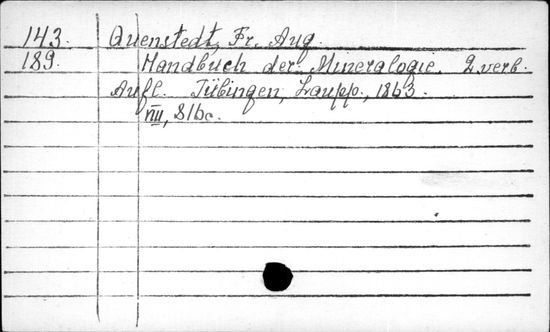 143. Quenstedt, Fr. Aug.
189. Handbuch der Mineralogie. 2. verb.
Aufl. Tübingen, Laupp., 1863.
VIII, 816c.